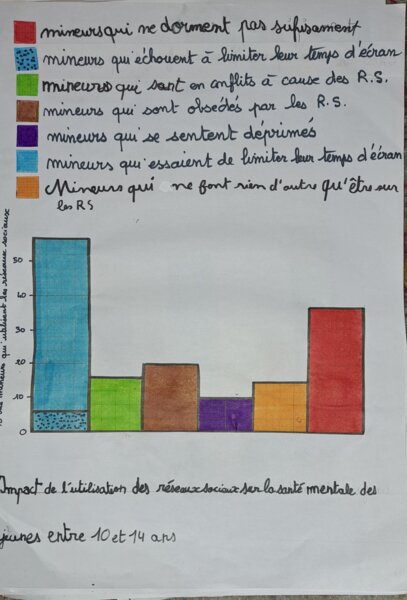 mineurs qui ne dorment pas sufisamment
mineurs qui échouent à limiter leur temps d'écran
mineurs qui sont en conflits à cause des R.S.
mineurs qui sont obsédés par les R.S.
mineurs qui se sentent déprimés
mineurs qui essaient de limiter leur temps d'écran
Mineurs qui ne font rien d'autre qu'être sur
les RS
mineurs qui utilisent les réseaux sociaux
50
40
30
20
10
0
Impact de l'utilisation des réseaux sociaux sur la santé mentale des
jeunes entre 10 et 14 ans